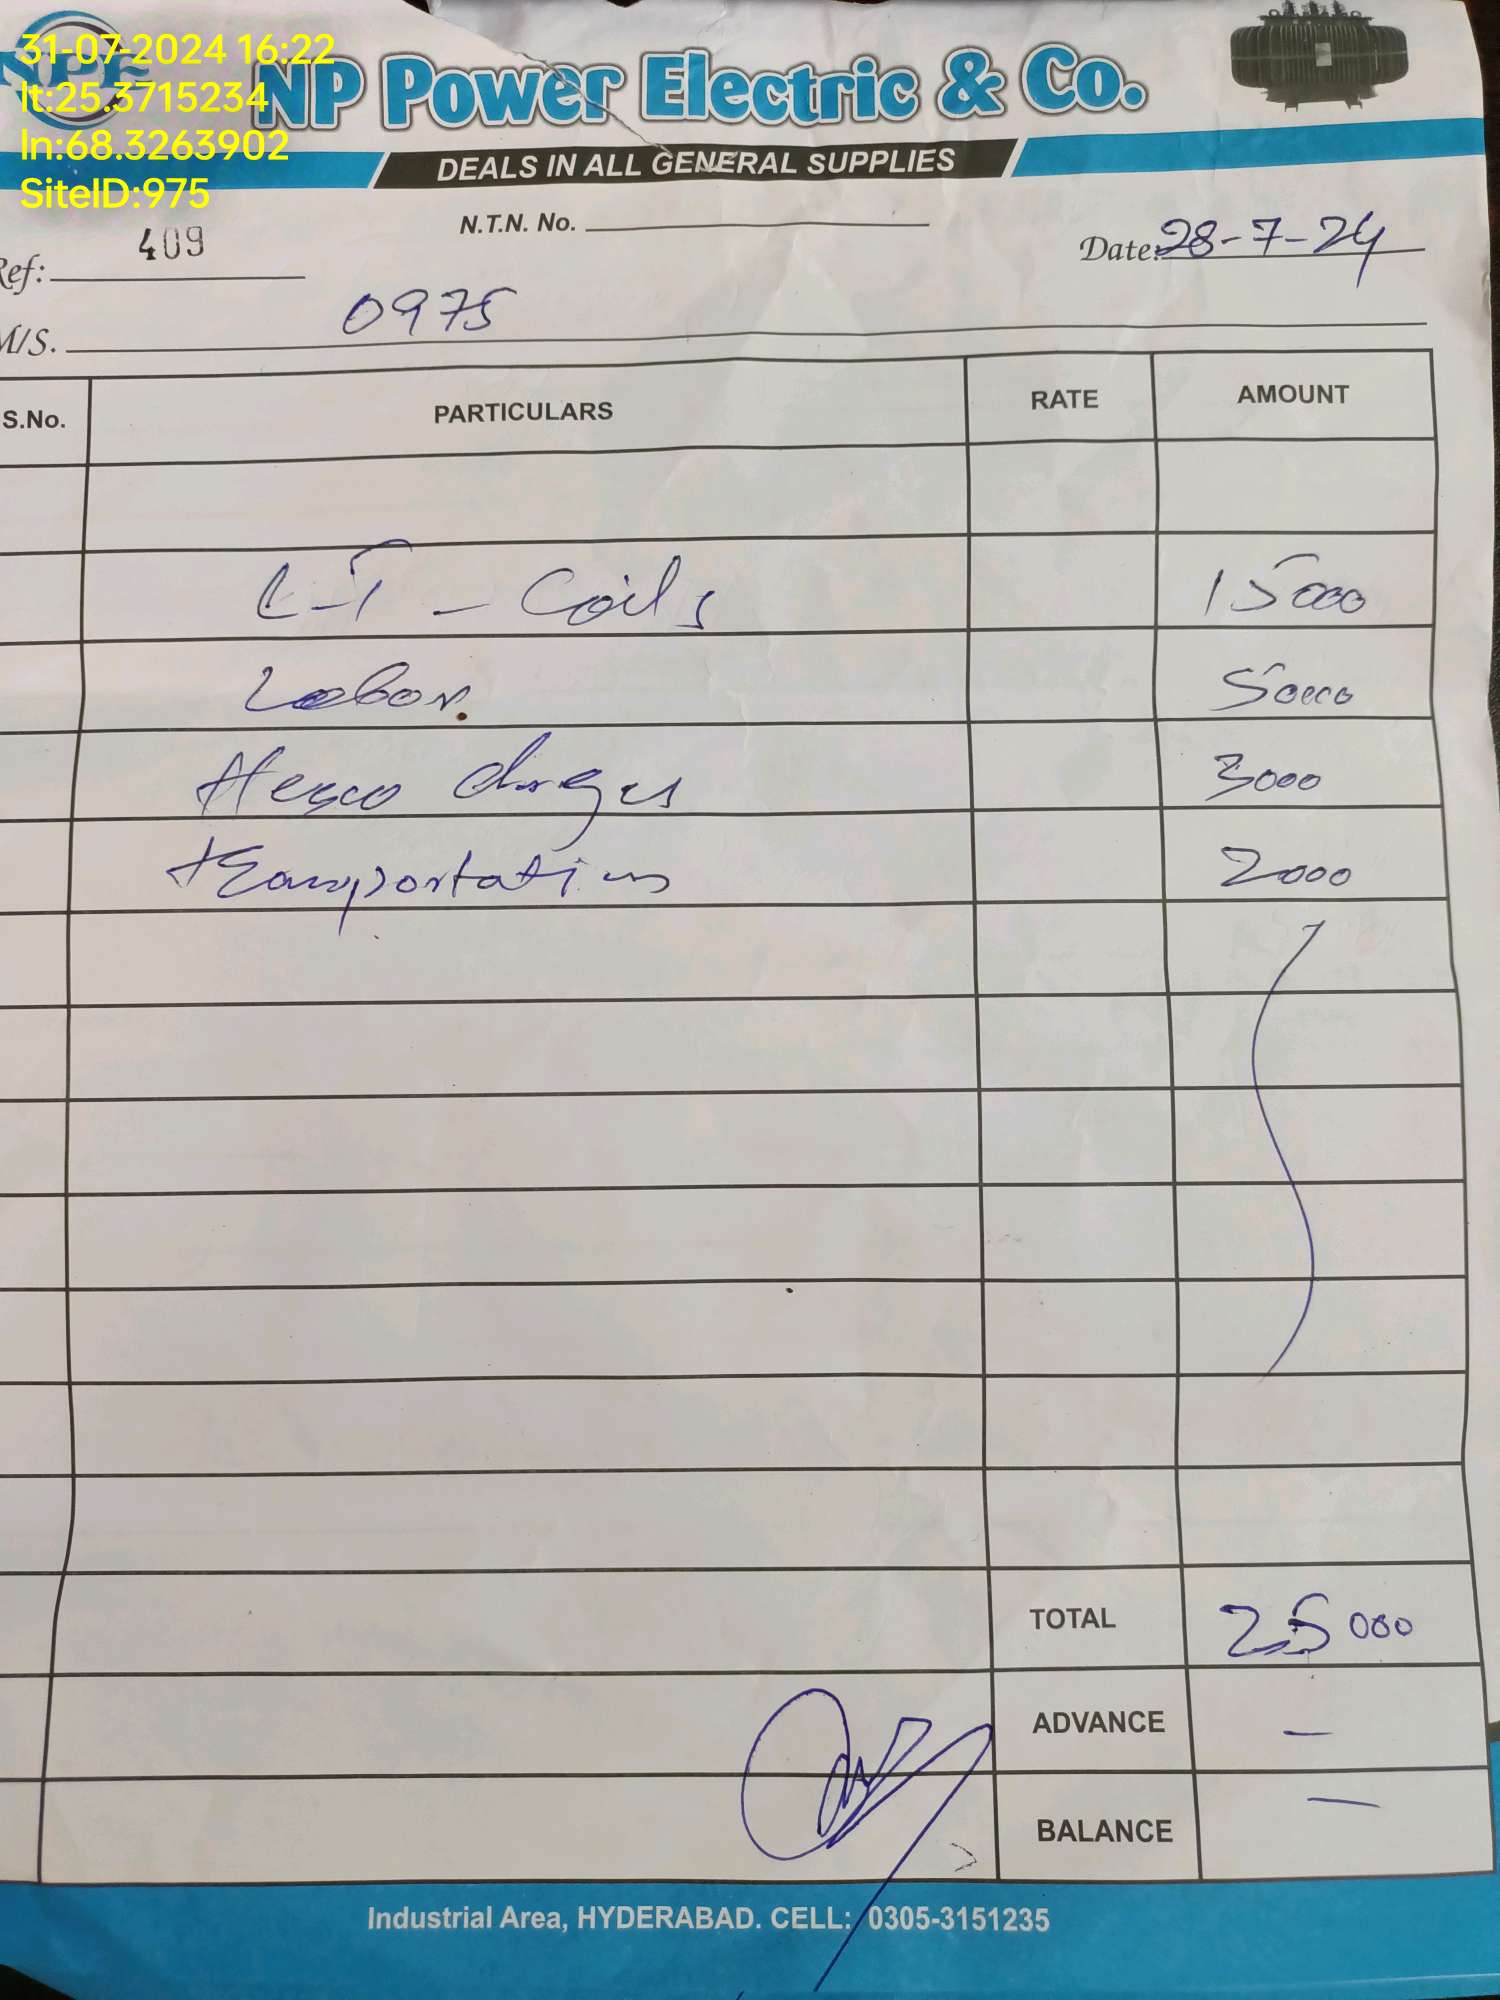 31-07-2024 16:22
lt:25.3715234
ln:68.3263902
SiteID:975
NPE
NP Power Electric & Co.
DEALS IN ALL GENERAL SUPPLIES
N.T.N. No.
Ref: 409
Date: 28-7-24
M/S. 0975
S.No. PARTICULARS RATE AMOUNT
L-T - Coils 15000
Labor. 5000
Hesco charges 3000
transportation 2000
TOTAL 25000
ADVANCE —
BALANCE —
Industrial Area, HYDERABAD. CELL: 0305-3151235